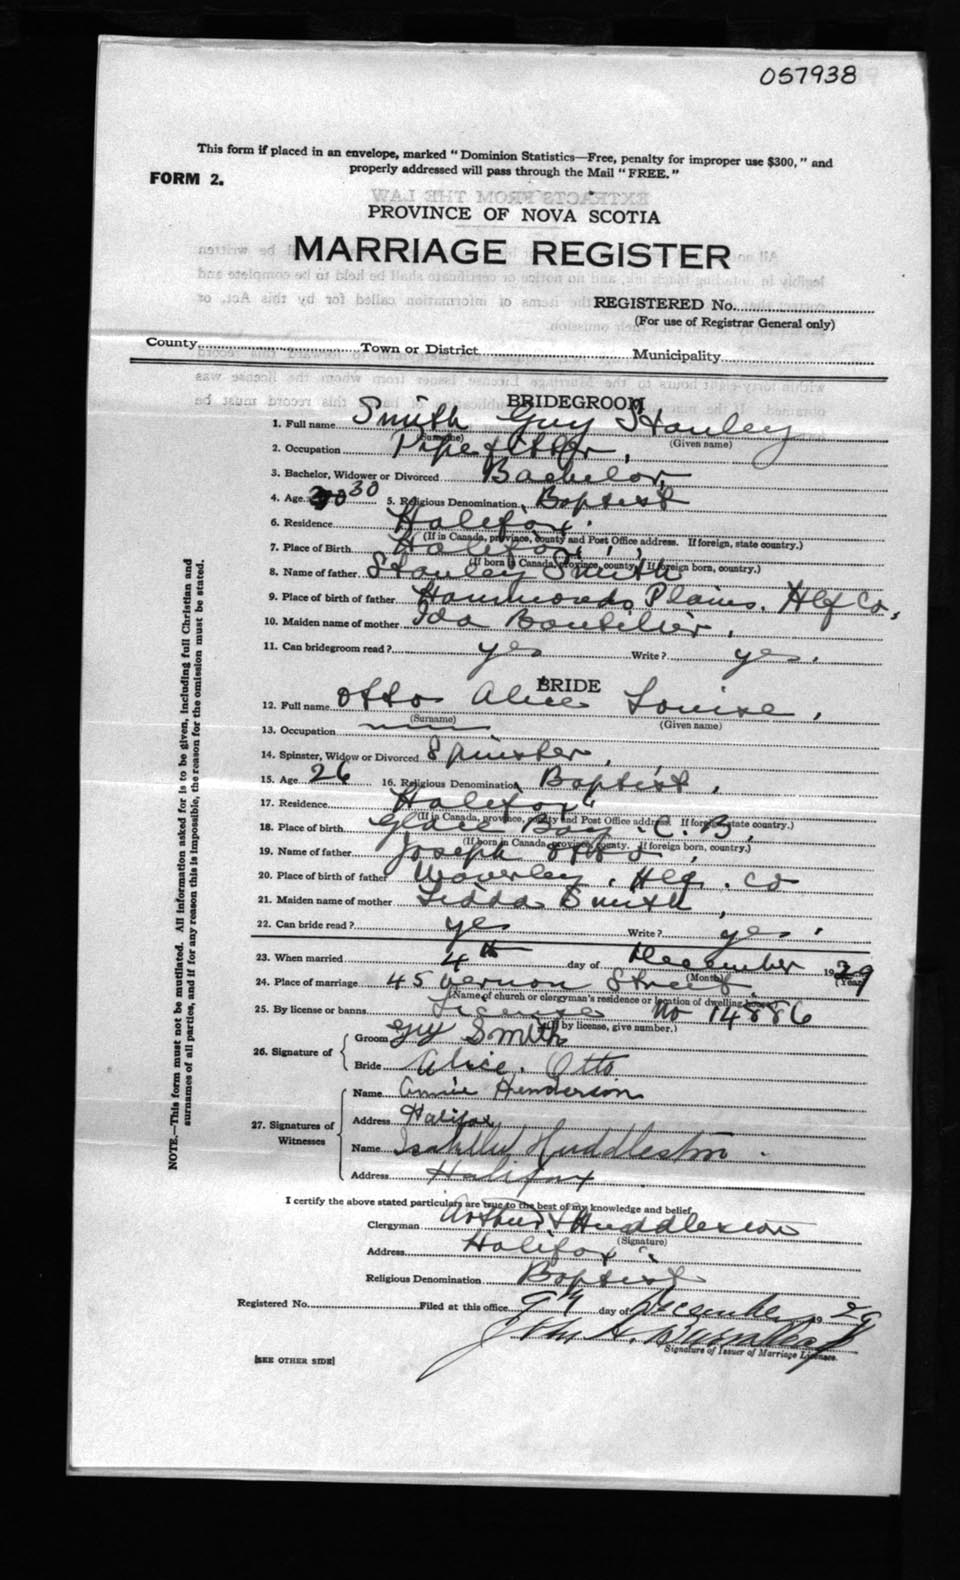 057938
This form if placed in an envelope, marked "Dominion Statistics—Free, penalty for improper use $300," and
properly addressed will pass through the Mail "FREE."
FORM 2.
EXTRACTS FROM THE LAW
PROVINCE OF NOVA SCOTIA
MARRIAGE REGISTER
REGISTERED No.
(For use of Registrar General only)
County Town or District Municipality
BRIDEGROOM
1. Full name Smith Guy Stanley
(Surname) (Given name)
2. Occupation Pipe fitter,
3. Bachelor, Widower or Divorced Bachelor,
4. Age 30 5. Religious Denomination Baptist
6. Residence Halifax.
(If in Canada, province, county and Post Office address. If foreign, state country.)
7. Place of Birth Halifax,
(If born in Canada, province, county. If foreign born, country.)
8. Name of father Stanley Smith
9. Place of birth of father Hammonds Plains. Hfx Co,
10. Maiden name of mother Ida Boutilier,
11. Can bridegroom read? yes Write? yes.
BRIDE
12. Full name Otto Alice Louise,
(Surname) (Given name)
13. Occupation
14. Spinster, Widow or Divorced Spinster,
15. Age 26 16. Religious Denomination Baptist,
17. Residence Halifax
(If in Canada, province, county and Post Office address. If foreign, state country.)
18. Place of birth Glace Bay. C. B,
(If born in Canada, province, county. If foreign born, country.)
19. Name of father Joseph Otto,
20. Place of birth of father Waverley, Hfx. Co
21. Maiden name of mother Smith,
22. Can bride read? yes Write? yes.
23. When married 4th day of December 1929
(Month) (Year)
24. Place of marriage 45 Vernon Street
(Name of church or clergyman's residence or location of dwelling house)
25. By license or banns License No 14886
(If by license, give number.)
26. Signature of
Groom Guy Smith
Bride Alice. Otto
27. Signatures of Witnesses
Name Annie Henderson
Address Halifax
Name Isabelle Huddleston.
Address Halifax
I certify the above stated particulars are true to the best of my knowledge and belief,
Clergyman Arthur Huddleston
(Signature)
Address Halifax
Religious Denomination Baptist
Registered No. Filed at this office 9th day of December 1929
John H.
Signature of Issuer of Marriage Licenses.
[SEE OTHER SIDE]
NOTE.—This form must not be mutilated. All information asked for is to be given, including full Christian and
surnames of all parties, and if for any reason this is impossible, the reason for the omission must be stated.